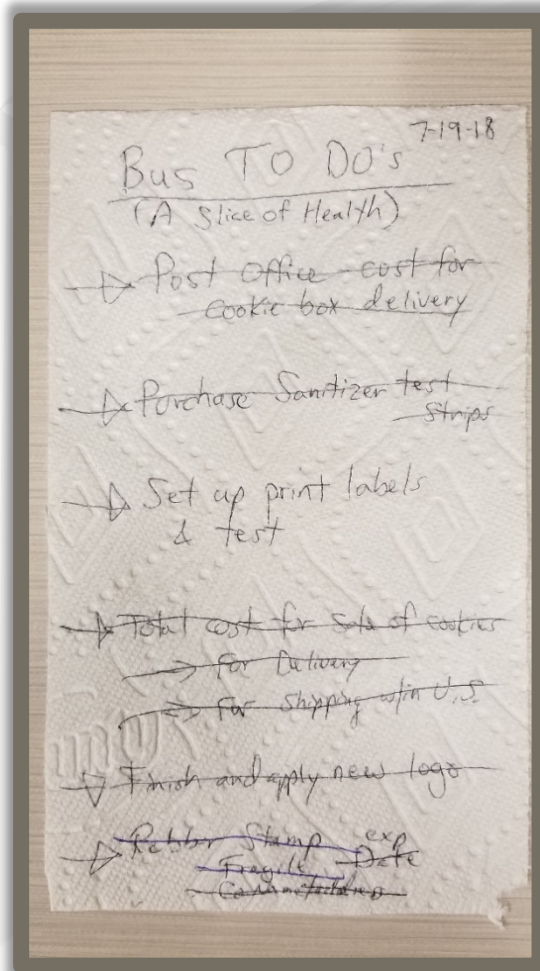 7-19-18
Bus TO DO's
(A Slice of Health)
Post Office cost for
cookie box delivery
Purchase Sanitizer test
Strips
Set up print labels
& test
Total cost for Sale of cookies
→ for Delivery
→ For Shipping w/in U.S.
Finish and apply new logo
Rubber Stamp exp
Fragile Date